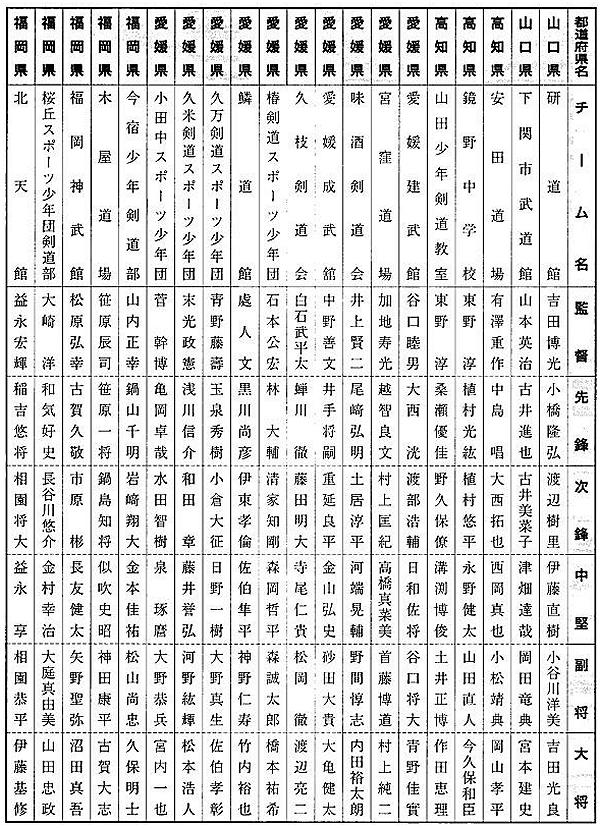 都道府県名 チーム名 監督 先鋒 次鋒 中堅 副将 大将
山口県 研道館 吉田博光 小橋隆弘 渡辺樹里 伊藤直樹 小谷川洋美 吉田光良
山口県 下関市武道館 山本英治 古井進也 古井美菜子 津畑達哉 岡田竜典 宮本建史
高知県 安田道場 有澤重作 中島唱 大西拓也 西岡真也 小松靖典 岡山孝平
高知県 鏡野中学校 東野淳 植村光紘 植村悠平 永野健太 山田直人 今久保和臣
高知県 山田少年剣道教室 東野淳 桑瀬優佳 野久保僚 溝渕博俊 土井正博 作田恵理
愛媛県 愛媛建武館 谷口睦男 大西洸 渡部浩輔 日和佐将 谷口将大 青野佳實
愛媛県 宮窪道場 加地寿光 越智良文 村上匡紀 高橋真菜美 首藤博道 村上純二
愛媛県 味酒剣道会 井上賢二 尾崎弘明 土居淳平 河端晃輔 野間惇志 内田裕太朗
愛媛県 愛媛成武舘 中野善文 井手将嗣 重延良平 金山弘史 砂田大貴 大亀健太
愛媛県 久枝剣道会 白石武平太 蝉川徹 藤田明大 寺尾仁貴 松岡徹 渡辺亮二
愛媛県 椿剣道スポーツ少年団 石本公宏 林大輔 清家知剛 森岡哲平 森誠太郎 橋本祐希
愛媛県 鱗道館 處人文 黒川尚彦 伊東孝倫 佐伯隼平 神野仁寿 竹内裕也
愛媛県 久万剣道スポーツ少年団 青野藤壽 玉泉秀樹 小倉大征 日野一樹 大野真生 佐伯孝彰
愛媛県 久米剣道スポーツ少年団 末光政憲 浅川信介 和田章 藤井誉弘 河野紘輝 松本浩人
愛媛県 小田中スポーツ少年団 菅幹博 亀岡卓哉 水田智樹 泉琢磨 大野恭兵 宮内一也
福岡県 今宿少年剣道部 山内正幸 鍋山千明 岩﨑翔大 金本佳祐 松山尚忠 久保明士
福岡県 木屋道場 笹原辰司 笹原一将 鍋島知将 似吹史昭 神田康平 古賀大志
福岡県 福岡神武館 松原弘幸 古賀久敬 市原彬 長友健太 矢野聖弥 沼田真吾
福岡県 桜丘スポーツ少年団剣道部 大崎洋 和気好史 長谷川悠介 金村幸治 大庭真由美 山田忠政
福岡県 北天館 益永宏輝 稲吉悠将 相園将大 益永享 相園恭平 伊藤基修